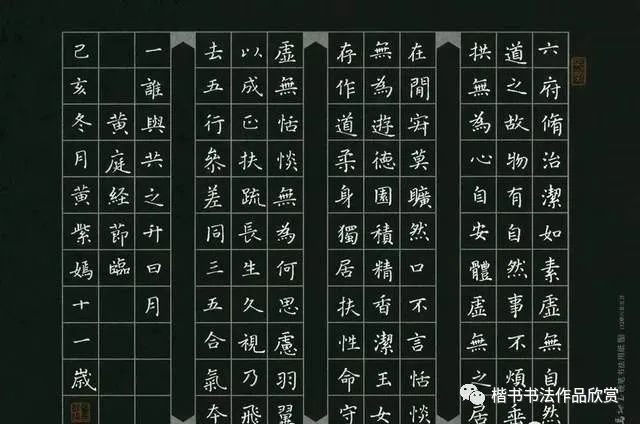 六府脩治潔如素虛無自然
道之故物有自然事不煩垂
拱無為心自安體虛無之居
在閒寂莫曠然口不言恬惔
無為遊德園積精香潔王女
存作道柔身獨居扶性命守
虛無恬惔無為何思慮羽翼
以成正扶疏長生久視乃飛
去五行叅差同三五合氣夲
一誰與共之升日月
黃庭経節臨
己亥冬月黃紫嫣十一歲
楷书书法作品欣赏